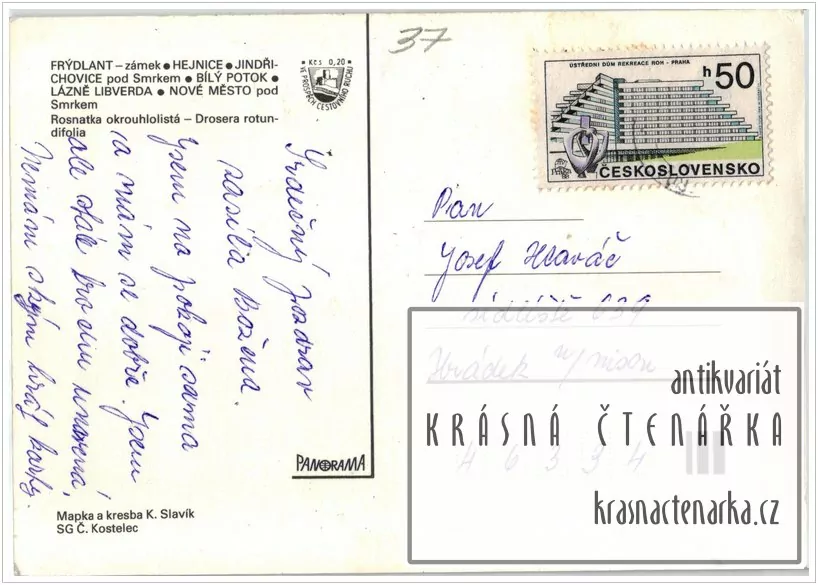 FRÝDLANT – zámek ● HEJNICE ● JINDŘI-
CHOVICE pod Smrkem ● BÍLÝ POTOK ●
LÁZNĚ LIBVERDA ● NOVÉ MĚSTO pod
Smrkem
Rosnatka okrouhlolistá – Drosera rotun-
difolia
Kčs 0,20
VE PROSPĚCH CESTOVNÍHO RUCHU
Srdečný pozdrav
zasílá Božena.
Jsem na pokoji sama
a mám se dobře. Jsem
ale stále trochu unavená,
Nemám s kým hrát karty.
PANORAMA
Mapka a kresba K. Slavík
SG Č. Kostelec
37
ÚSTŘEDNÍ DŮM REKREACE ROH - PRAHA
h50
PRAGA
ČESKOSLOVENSKO
Pan
Josef Hlaváč
sídliště 639
Hrádek n/Nisou
46334
antikvariát
KRÁSNÁ ČTENÁŘKA
krasnactenarka.cz